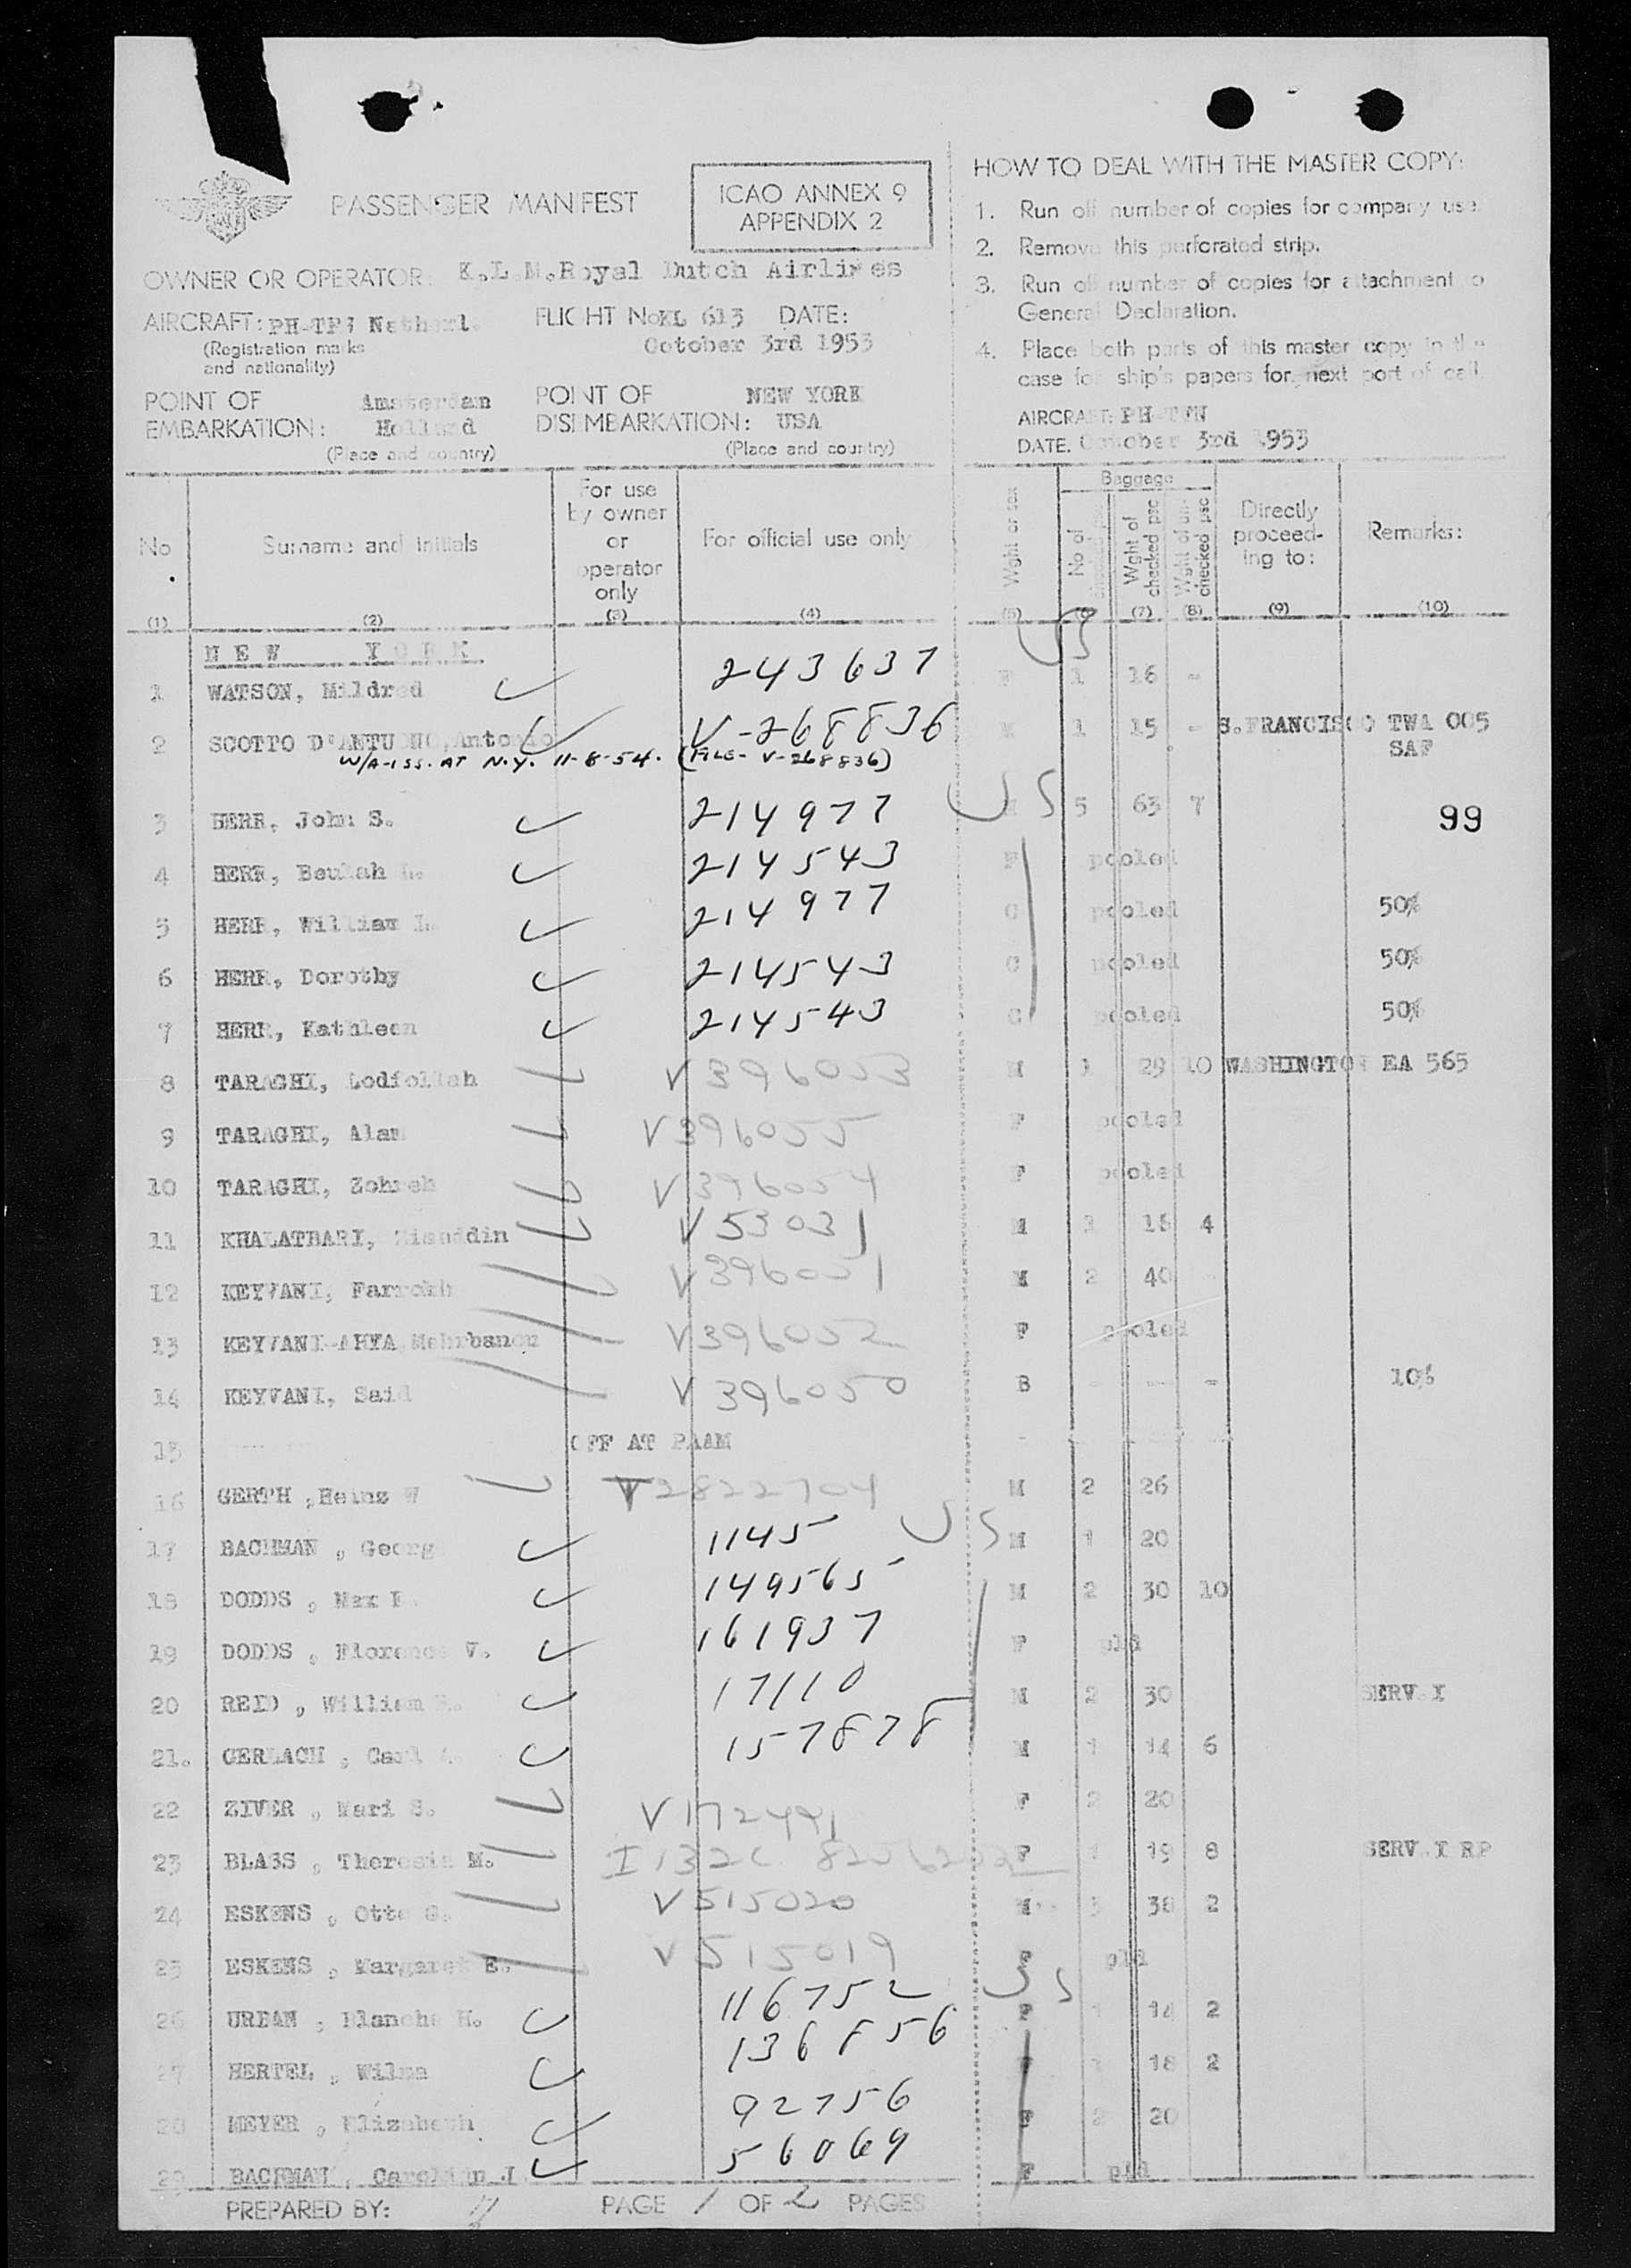 PASSENGER MANIFEST
ICAO ANNEX 9
APPENDIX 2
OWNER OR OPERATOR: K.L.M. Royal Dutch Airlines
AIRCRAFT: Netherl.
(Registration marks
and nationality)
FLIGHT No KL 613 DATE:
October 3rd 1953
POINT OF EMBARKATION: Amsterdam Holland
(Place and country)
POINT OF DISEMBARKATION: NEW YORK USA
(Place and country)
HOW TO DEAL WITH THE MASTER COPY:
1. Run off number of copies for company use.
2. Remove this perforated strip.
3. Run off number of copies for attachment to
General Declaration.
4. Place both parts of this master copy in the
case for ship's papers for next port of call.
AIRCRAFT: PH-TFN
DATE. October 3rd 1953
No (1)
Surname and initials (2)
For use by owner or operator only (3)
For official use only (4)
Wght or sex (5)
Baggage
No of checked psc (6)
Wght of checked psc (7)
Wght of un- checked psc (8)
Directly proceed- ing to: (9)
Remarks: (10)
NEW YORK
US
1 WATSON, Mildred 243637 F 1 16 -
2 SCOTTO D'ANTUONO, Antonio V-268836 M 1 15 - S.FRANCISCO TWA 005
SAF
W/A-ISS. AT N.Y. 11-8-54. (FILE- V-268836)
3 HERR, John S. 214977 US M 5 63 7
99
4 HERR, Beulah L. 214543 F pooled
5 HERR, William L. 214977 C pooled 50%
6 HERR, Dorothy 214543 C pooled 50%
7 HERR, Kathleen 214543 C pooled 50%
8 TARAGHI, Lodfollah V396053 M 1 29 10 WASHINGTON EA 565
9 TARAGHI, Alam V396055 F pooled
10 TARAGHI, Zohreh V396054 F pooled
11 KHALATBARI, Ziaeddin V53031 M 1 16 4
12 KEYVANI, Farrokh V396051 M 2 40
13 KEYVANI-ARYA Mehrbanou V396052 F pooled
14 KEYVANI, Said V396050 B - - - 10%
15 OFF AT PAAM
16 GERTH, Heinz W V2822704 M 2 26
17 BACHMAN, Georg 1145 US M 1 20
18 DODDS, Max 149565 M 2 30 10
19 DODDS, Florence V. 161937 F pld
20 REID, William 17110 M 2 30 SERV.X
21. GERLACH, Carl A. 157878 M 1 14 6
22 ZIVER, Mari S. F 2 20
23 BLASS, Theresia M. F 1 19 8 SERV.X RP
24 ESKENS, Otto G. V515020 M 3 38 2
25 ESKENS, Margaret E. V515019 F pld
US
26 URBAN, Blanche H. 116752 F 1 14 2
27 HERTEL, Wilma 136856 F 1 18 2
28 MEYER, Elizabeth 92756 F 2 20
29 BACHMAN, J 56069 F pld
PREPARED BY:
PAGE 1 OF 2 PAGES